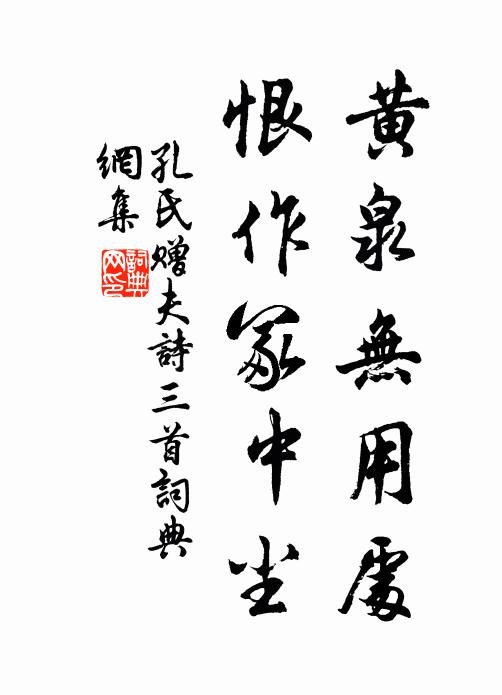 黄泉無用處
恨作冢中尘
孔氏赠夫詩三首詞典
網集
詞典
网印